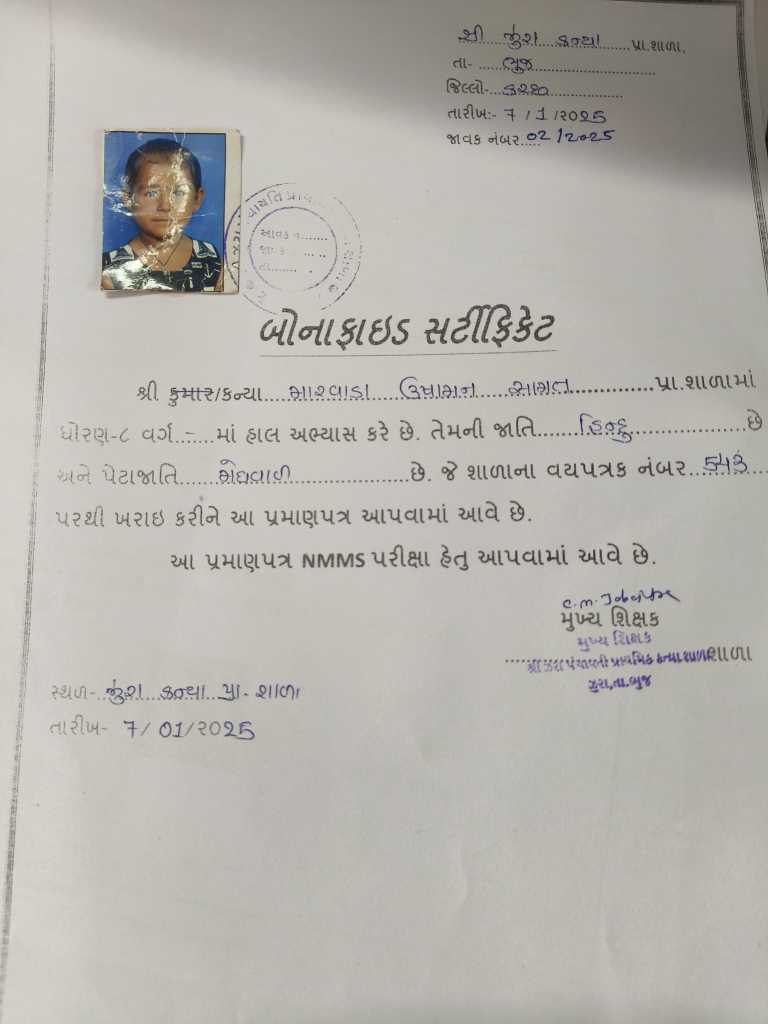 શ્રી ઝુરા કન્યા ......... પ્રા.શાળા.
તા- ..... ભુજ ..............................
જિલ્લો-... કચ્છ ......................
તારીખ:- 7 / 1 / ૨૦25
જાવક નંબર..... 02 / 2025
આવક નં........
બોનાફાઇડ સર્ટીફિકેટ
શ્રી કુમાર/કન્યા.... મારવાડા .... .... ...............પ્રા.શાળામાં
ધોરણ-૮ વર્ગ..-....માં હાલ અભ્યાસ કરે છે. તેમની જાતિ....... હિન્દુ ....................છે
અને પેટાજાતિ...... મેઘવાળ ....................છે. જે શાળાના વયપત્રક નંબર.. 543 ....
પરથી ખરાઇ કરીને આ પ્રમાણપત્ર આપવામાં આવે છે.
આ પ્રમાણપત્ર NMMS પરીક્ષા હેતુ આપવામાં આવે છે.
મુખ્ય શિક્ષક
મુખ્ય શિક્ષક
શ્રી ઝુરા પંચાયતી પ્રાથમિક કન્યા શાળા શાળા
ઝુરા,તા.ભુજ
સ્થળ-.. ઝુરા કન્યા પ્રા- શાળા
તારીખ- 7/ 01/ ૨૦25